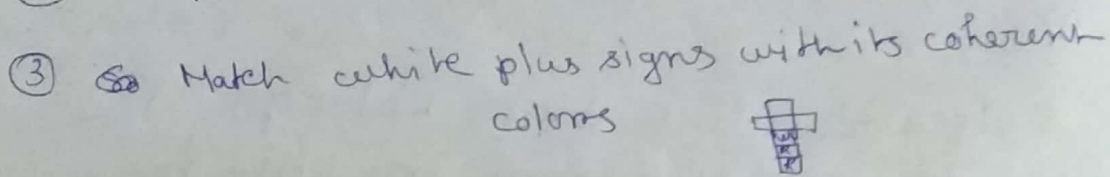 ③ Match white plus signs with its coherent
colors